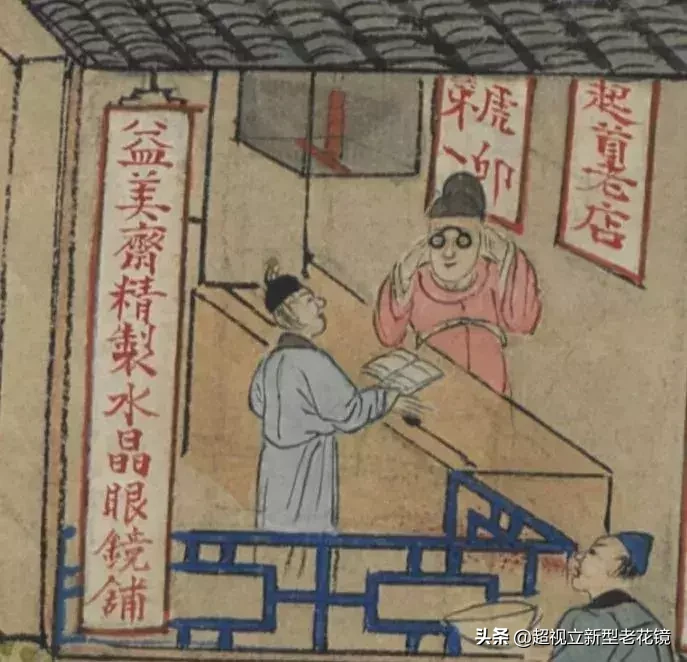 起首老店
益美齋精製水晶眼鏡舖
头条 @超视立新型老花镜